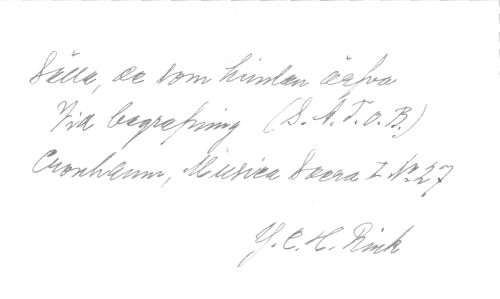 Sälla, de som himlen ärfva
Vid begrafning (S. A. T. o. B.)
Cronhamn, Musica Sacra I No. 27
J. C. H. Rink